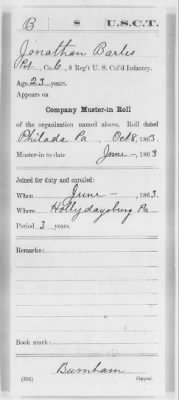 B 8 U.S.C.T.
Jonathan Barles
Pvt, Co. C, 8 Reg't U. S. Col'd Infantry.
Age 23 years.
Appears on
Company Muster-in Roll
of the organization named above. Roll dated
Philada Pa, Oct 8, 1863.
Muster-in to date June –, 1863
Joined for duty and enrolled:
When June –, 1863.
Where Hollydaysburg Pa
Period 3 years.
Remarks:
Book mark:
Burnham
(356) Copyist.